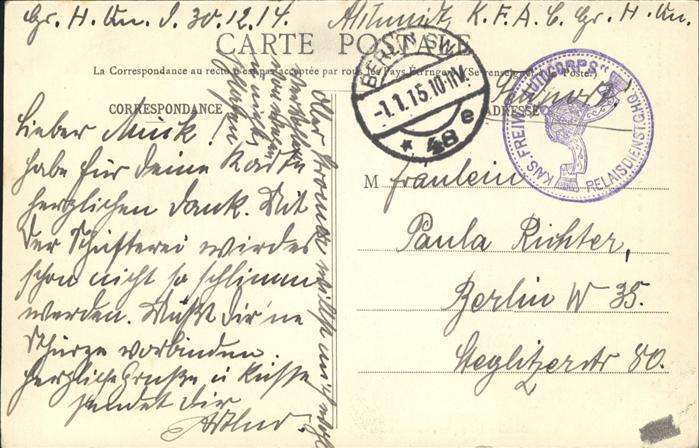 Gr. H. Qu. d. 30.12.14. A. Schmidt, K. F. A. C. Gr. H. Qu.
CARTE POSTALE
La Correspondance au recto n'est pas acceptée par tous les Pays Étrangers (Se renseigner à la Poste.)
CORRESPONDANCE
Lieber Muck!
habe für Deine Karte
herzlichen Dank. Mit
der Schufterei wird es
schon nicht so schlimm
werden. Mußt Dir 'ne
Schürze vorbinden.
Herzliche Grüße u Küsse
sendet Dir
Arthur.
willst
nicht
BERLIN SW
-1.1.15.10-11V.
* 48 e
KAIS. FREIW. AUT. CORPS
RELAISDIENST
ADRESSE
M Fräulein
Paula Richter,
Berlin W 35.
Steglitzerstr 80.